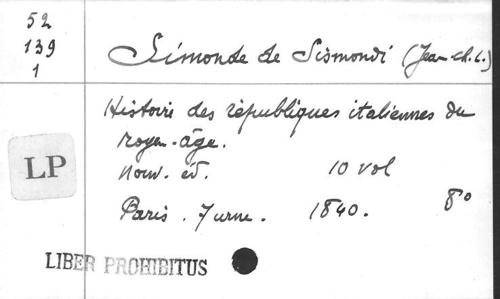 52
139
1
Simonde de Sismondi (Jean-Ch.L.)
Histoire des républiques italiennes du
moyen-âge.
Nouv. éd. 10 vol
Paris. Furne. 1840. 8°
LP
LIBER PROHIBITUS